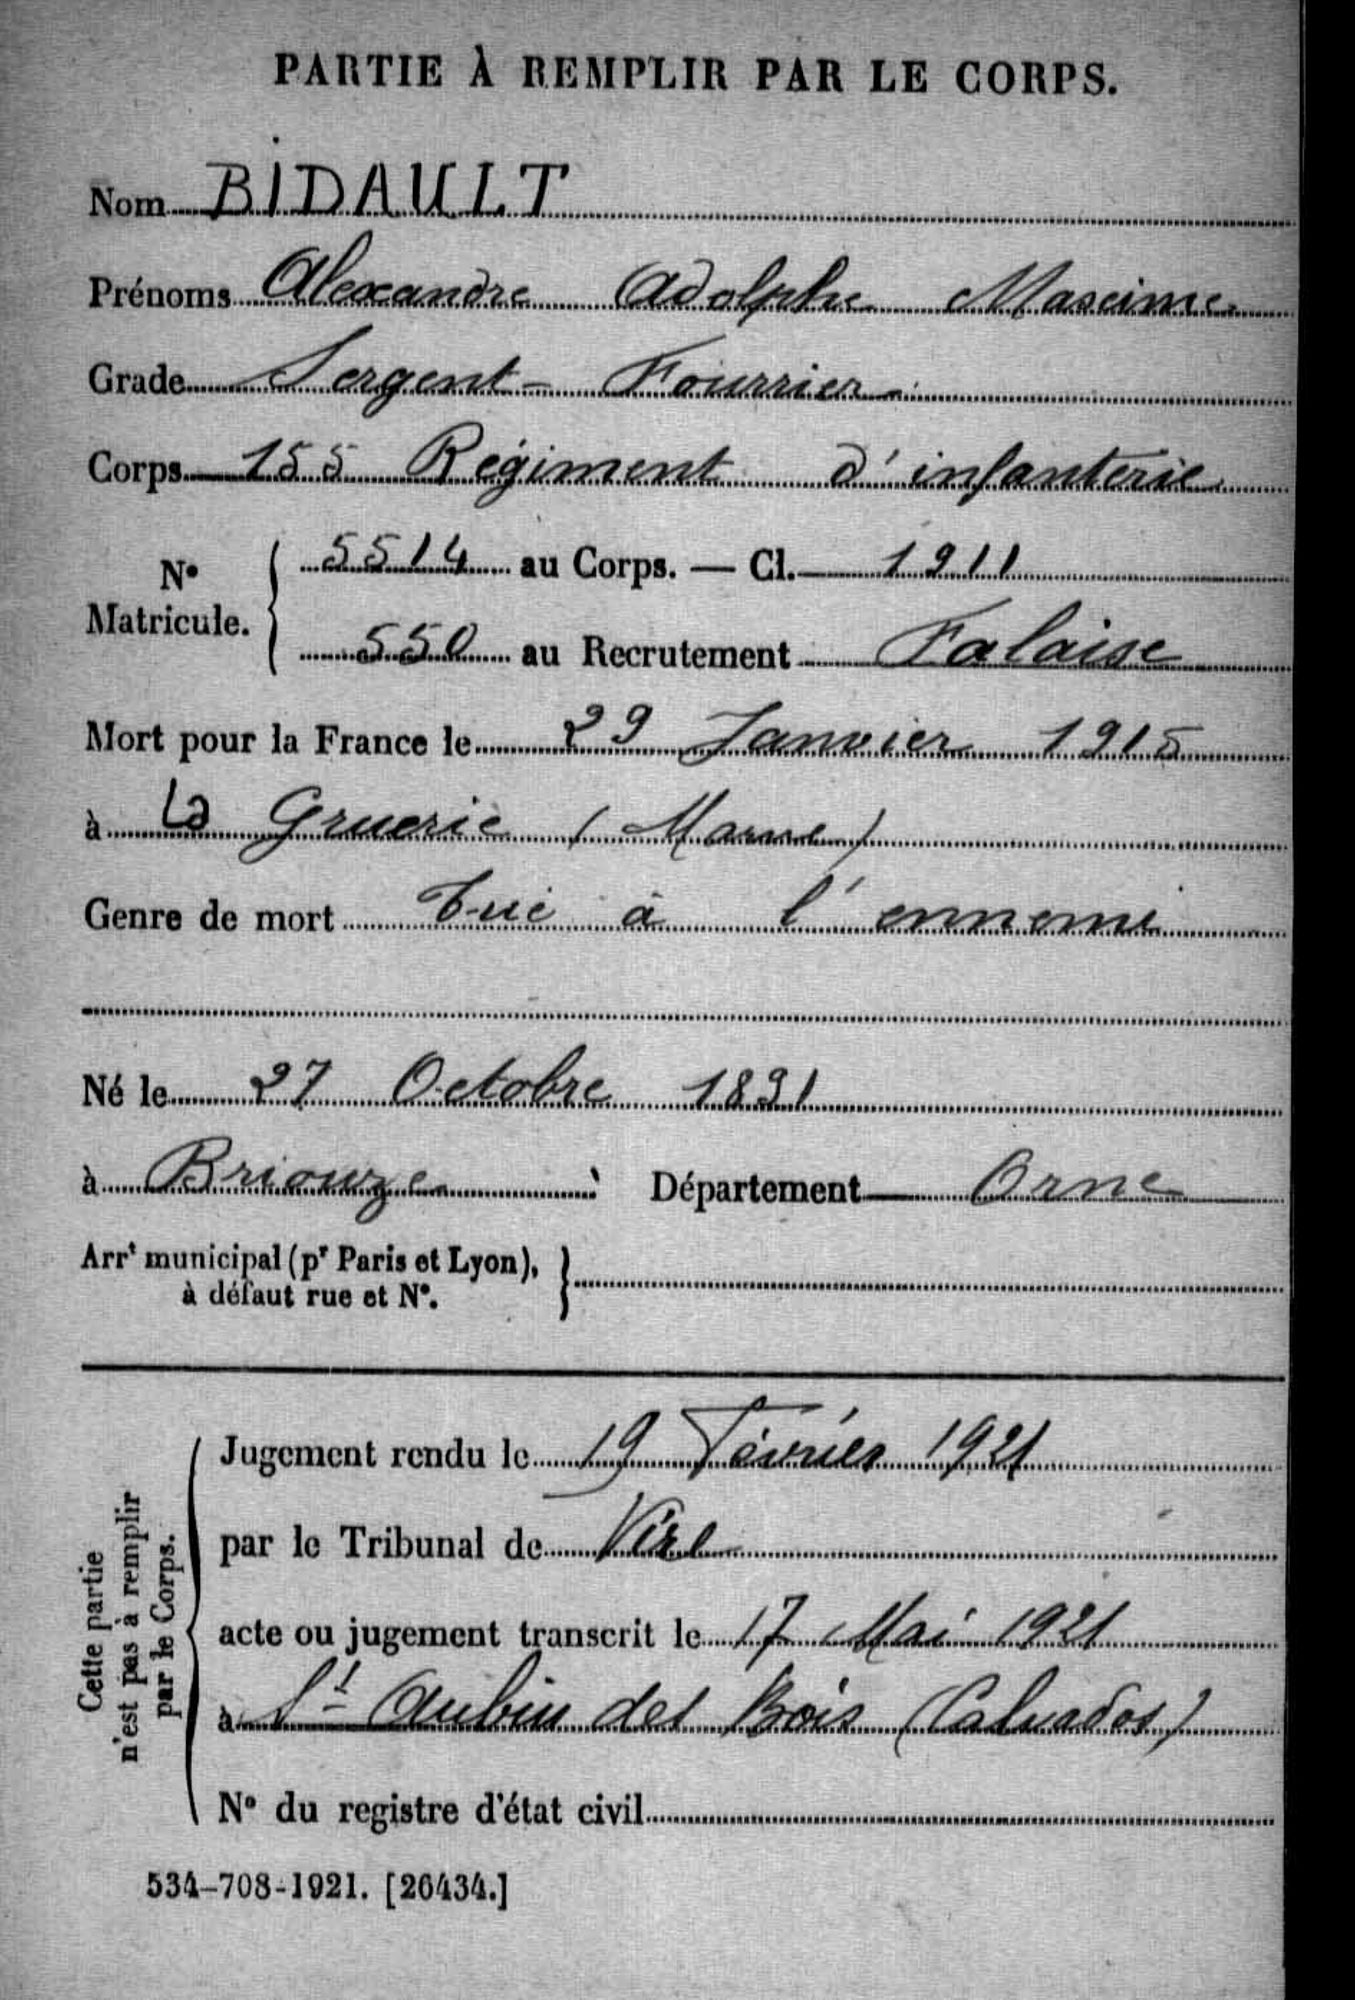 PARTIE À REMPLIR PAR LE CORPS.
Nom BIDAULT
Prénoms Alexandre Adolphe Maxime
Grade Sergent-Fourrier
Corps 155 Régiment d'infanterie
N° Matricule. 5514 au Corps. — Cl. 1911
550 au Recrutement Falaise
Mort pour la France le 29 Janvier 1915
à La Gruerie (Marne)
Genre de mort Tué à l'ennemi
Né le 27 Octobre 1891
à Briouze Département Orne
Arrt municipal (pr Paris et Lyon),
à défaut rue et N°.
Cette partie
n'est pas à remplir
par le Corps.
Jugement rendu le 19 Février 1921
par le Tribunal de Vire
acte ou jugement transcrit le 17 Mai 1921
à St Aubin des Bois (Calvados)
N° du registre d'état civil
534-708-1921. [26434.]